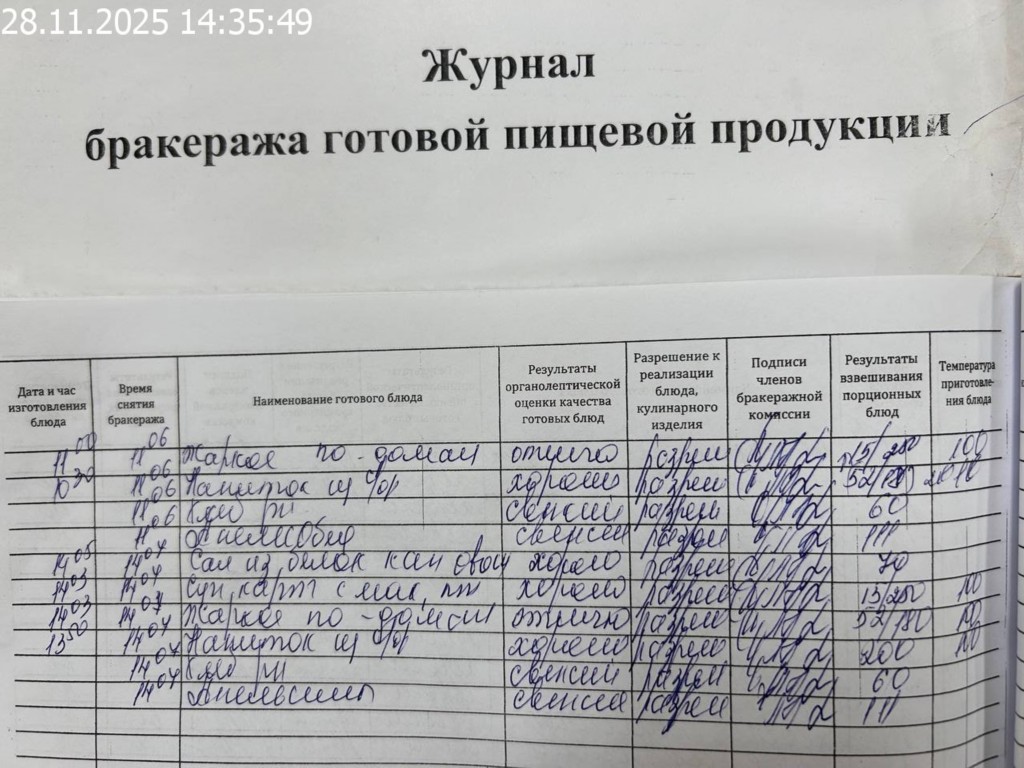 28.11.2025 14:35:49
Журнал
бракеража готовой пищевой продукции
Дата и час изготовления блюда Время снятия бракеража Наименование готового блюда Результаты органолептической оценки качества готовых блюд Разрешение к реализации блюда, кулинарного изделия Подписи членов бракеражной комиссии Результаты взвешивания порционных блюд Температура приготовле- ния блюда
11 00 11 06 Жаркое по-домаш отлично разреш 100
10 30 11 06 Напиток из ф/р хорошо разреш
11 06 Хлеб рж свежий разреш 60
11 06 Апельсины свежие разреш 111
14 05 14 07 Сал из белок кап овощ хорошо разреш 70
14 03 14 07 Суп карт с мак, пт хорошо разреш 15/250 100
14 03 14 07 Жаркое по-домаш отлично разреш 52/180 100
13 50 14 07 Напиток из ф/р хорошо разреш 200 100
14 07 Хлеб рж свежий разреш 60
14 07 Апельсины свежие разреш 111